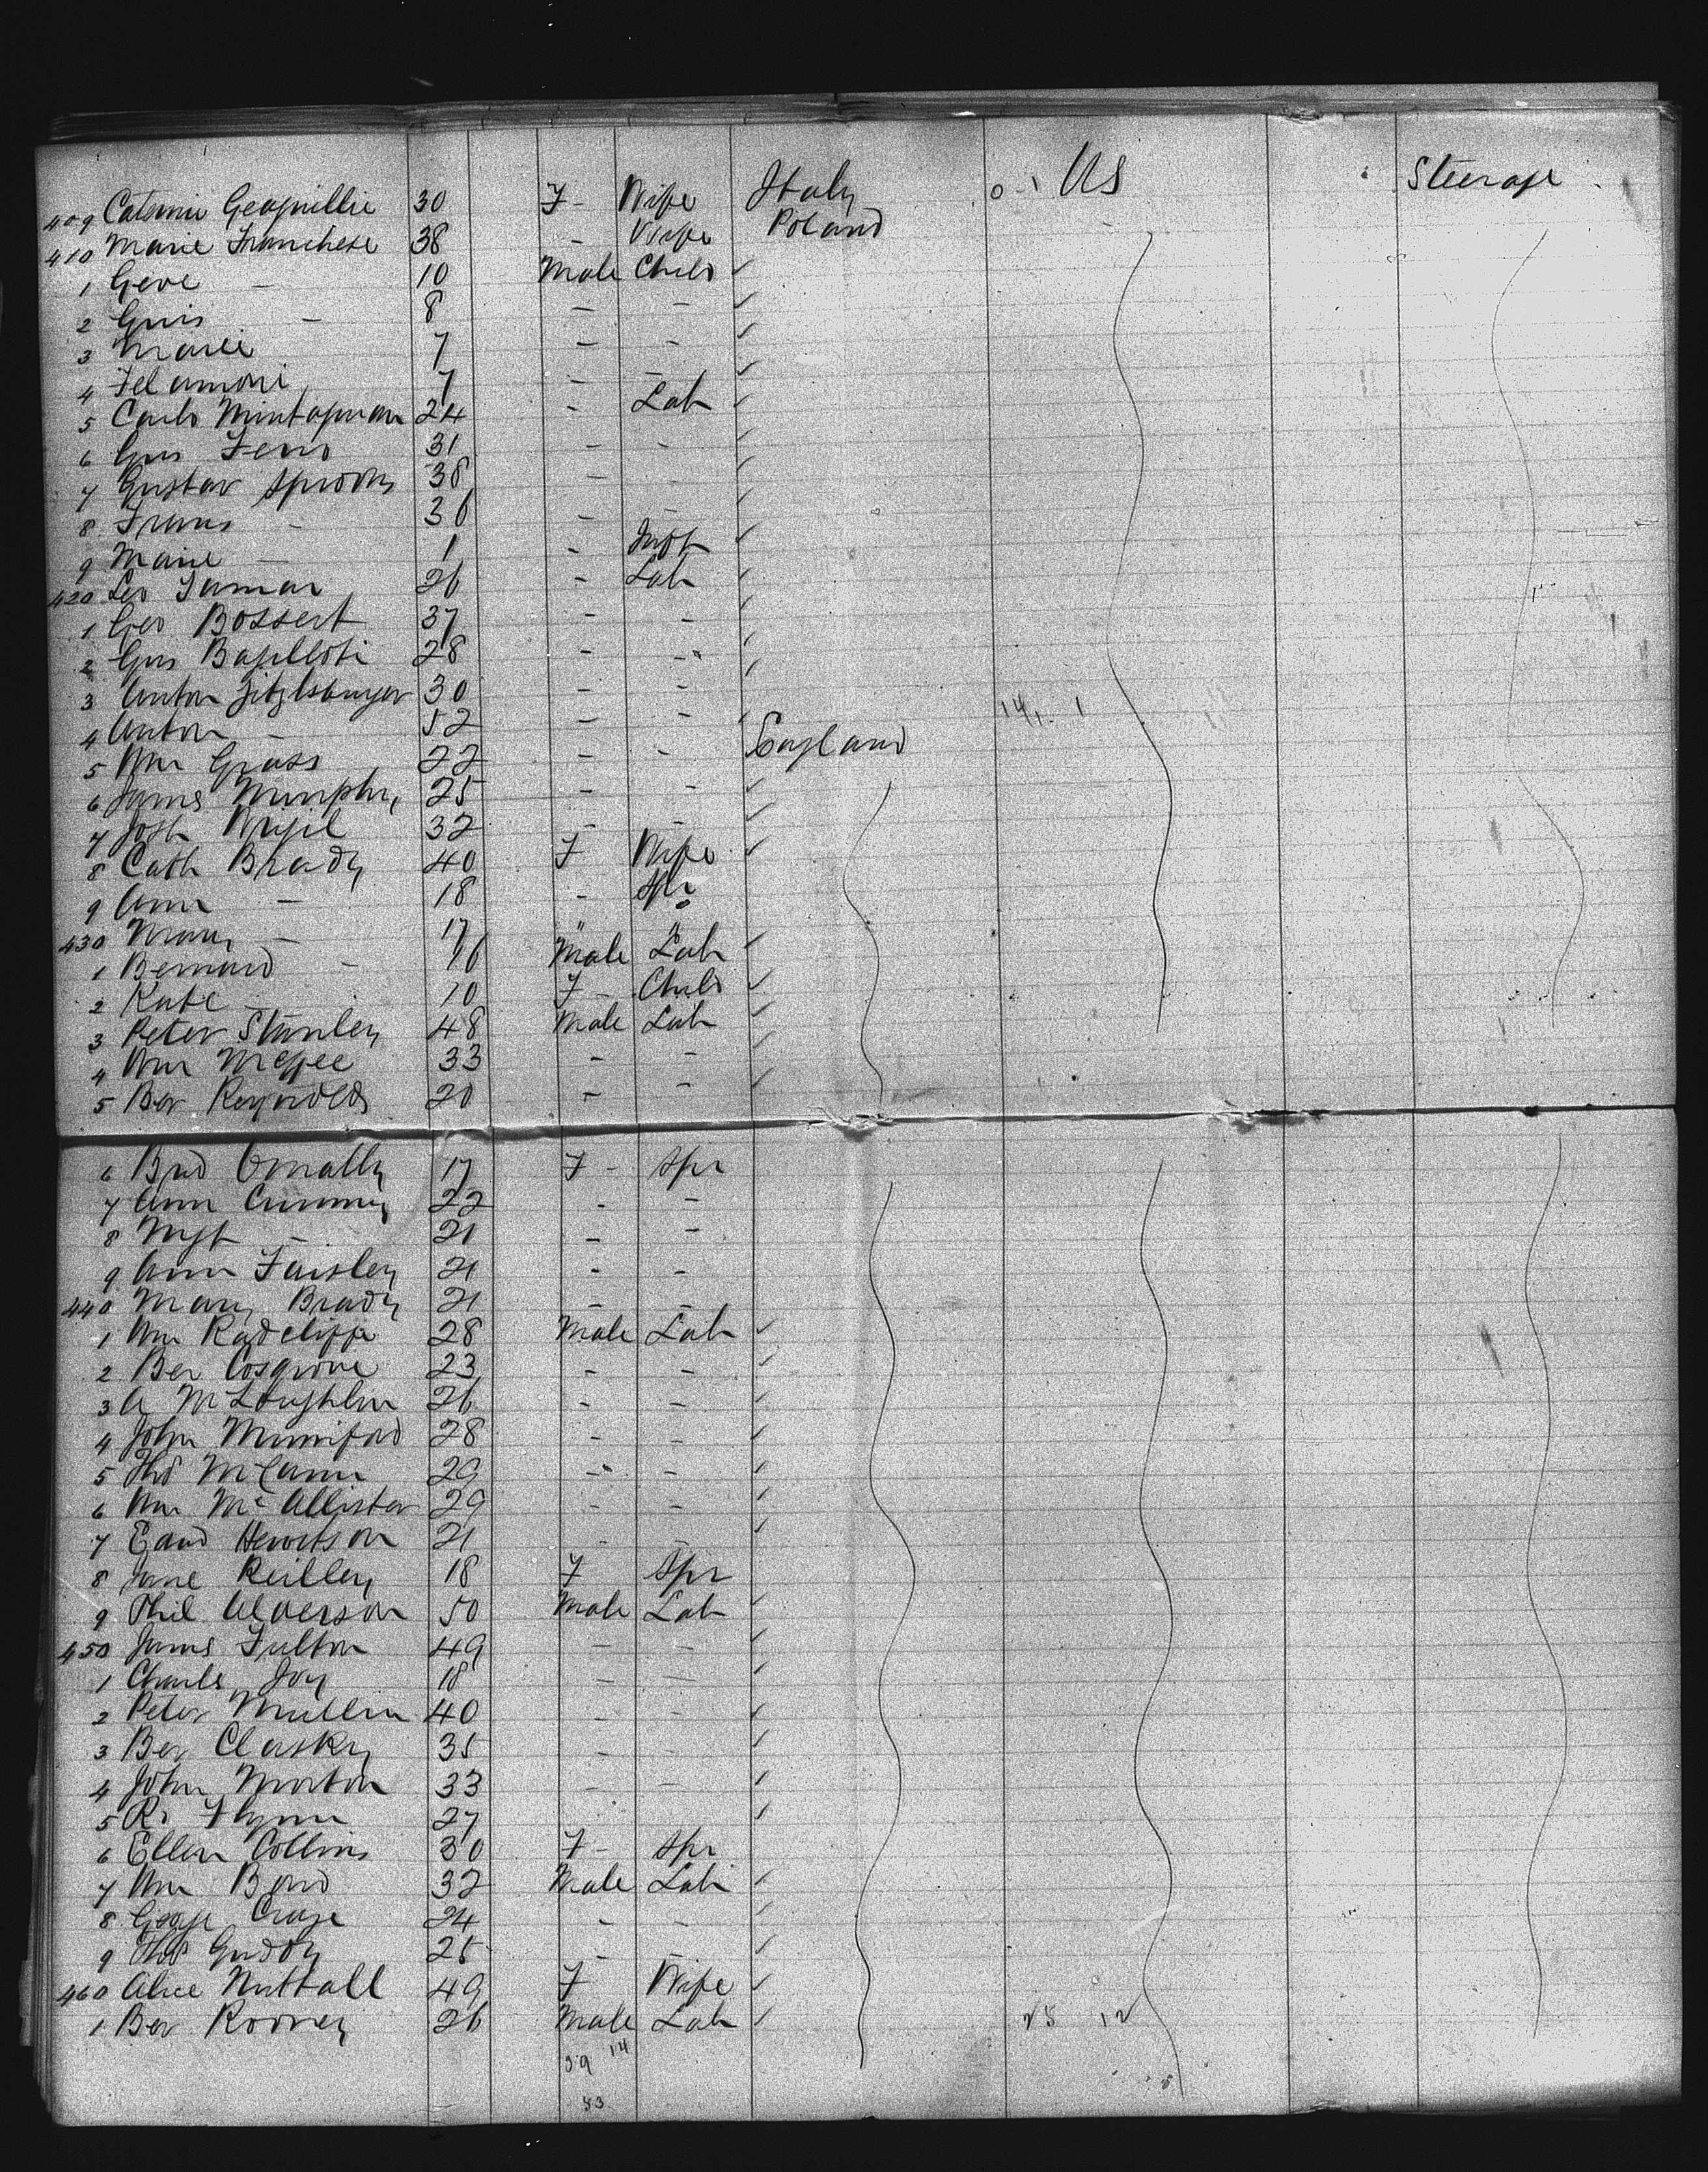 409 30 F - Wife Italy US Steerage
410 Marie Franchese 38 - Wife Poland
1 Geve - 10 Male Child
2 - 8 - -
3 Marie 7 - -
4 7 - -
5 Carlo 24 - Lab
6 Gus 31 - -
7 Gustav 38 - -
8 Frans - 36 - -
9 Marie - 1 - Inft
420 Leo 26 - Lab
1 Geo Bossert 37 - -
2 Gus 28 - -
3 Anton 30 - -
4 Anton - 52 - -
5 Wm Grass 22 - - England
6 James Murphy 25 - -
7 Josh 32 - -
8 Cath Brady 40 F Wife
9 Ann - 18 - Spr
430 Mary - 17 " "
1 Bernard - 16 Male Lab
2 Kate - 10 F - Child
3 Peter Stanley 48 Male Lab
4 Wm McGee 33 - -
5 Ber Reynolds 20 - -
6 Brid Omally 17 F - Spr
7 Ann 22 - -
8 Mgt - - 21 - -
9 Ann 21 - -
440 Mary Brady 21 - -
1 Wm Radcliffe 28 Male Lab
2 Ber Cosgrove 23 - -
3 A McLoughlin 26 - -
4 John 28 - -
5 Tho McCann 29 - -
6 Wm McAllister 29 - -
7 Edwd Hewitson 21 - -
8 Jane Reilley 18 F Spr
9 Phil Alverson 50 Male Lab
450 James Fulton 49 - -
1 Charles Joy 18 - -
2 Peter Mullin 40 - -
3 Ber Clasky 35 - -
4 John Morton 33 - -
5 Flynn 27
6 Ellen Collins 30 F - Spr
7 Wm 32 Male Lab
8 George 24 - -
9 Tho 25 - -
460 Alice Nuttall 49 F Wife
1 Ber Rooney 26 Male Lab 25 12
39 14
53